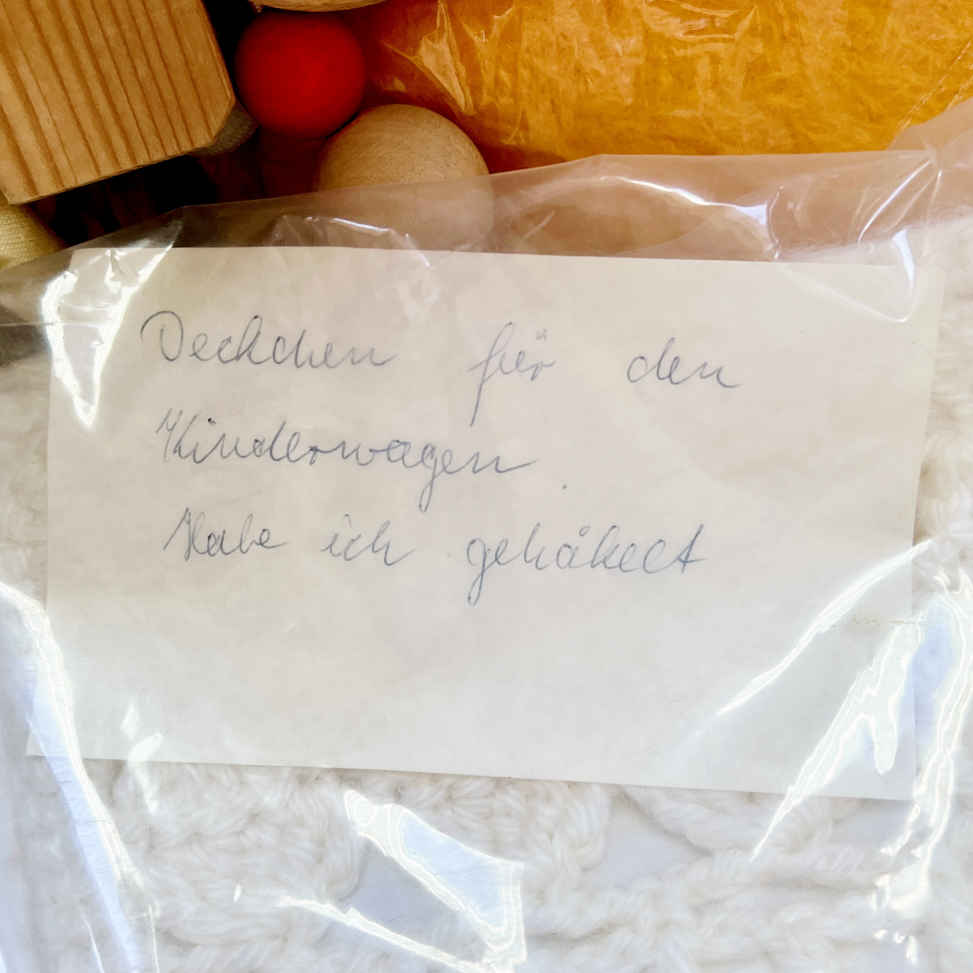 Deckchen für den
Kinderwagen.
Habe ich gehäkelt